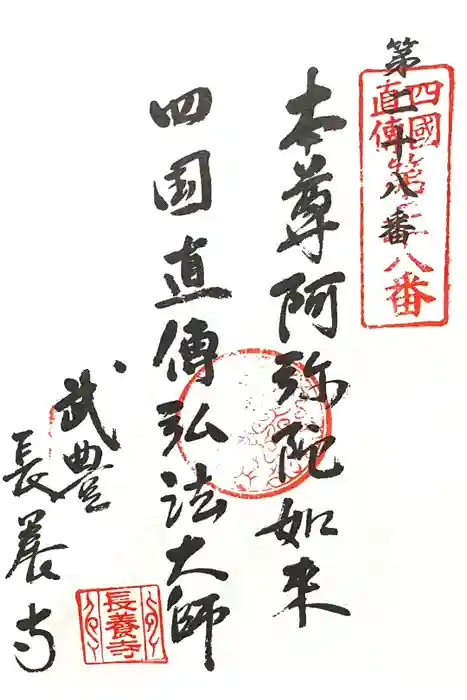 第二十八番
四國
直傳
第二十八番
本尊阿弥陀如来
四国直傳弘法大師
武豊
長養寺
長養寺